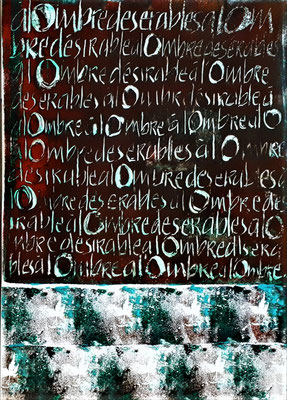 alOmbredeserablesalOm
bredesirablealOmbredeserables
alOmbredesirablealOmbre
deserablesalOmbredesirablea
lOmbrealOmbrealOmbre
alOmbredeserablesalOmbre
desirablealOmbredeserables a
lOmbredeserablesalOmbre des
irablealOmbredeserablesalO
mbredesirablealOmbredlsera
blesalOmbrealOmbrealOmbre